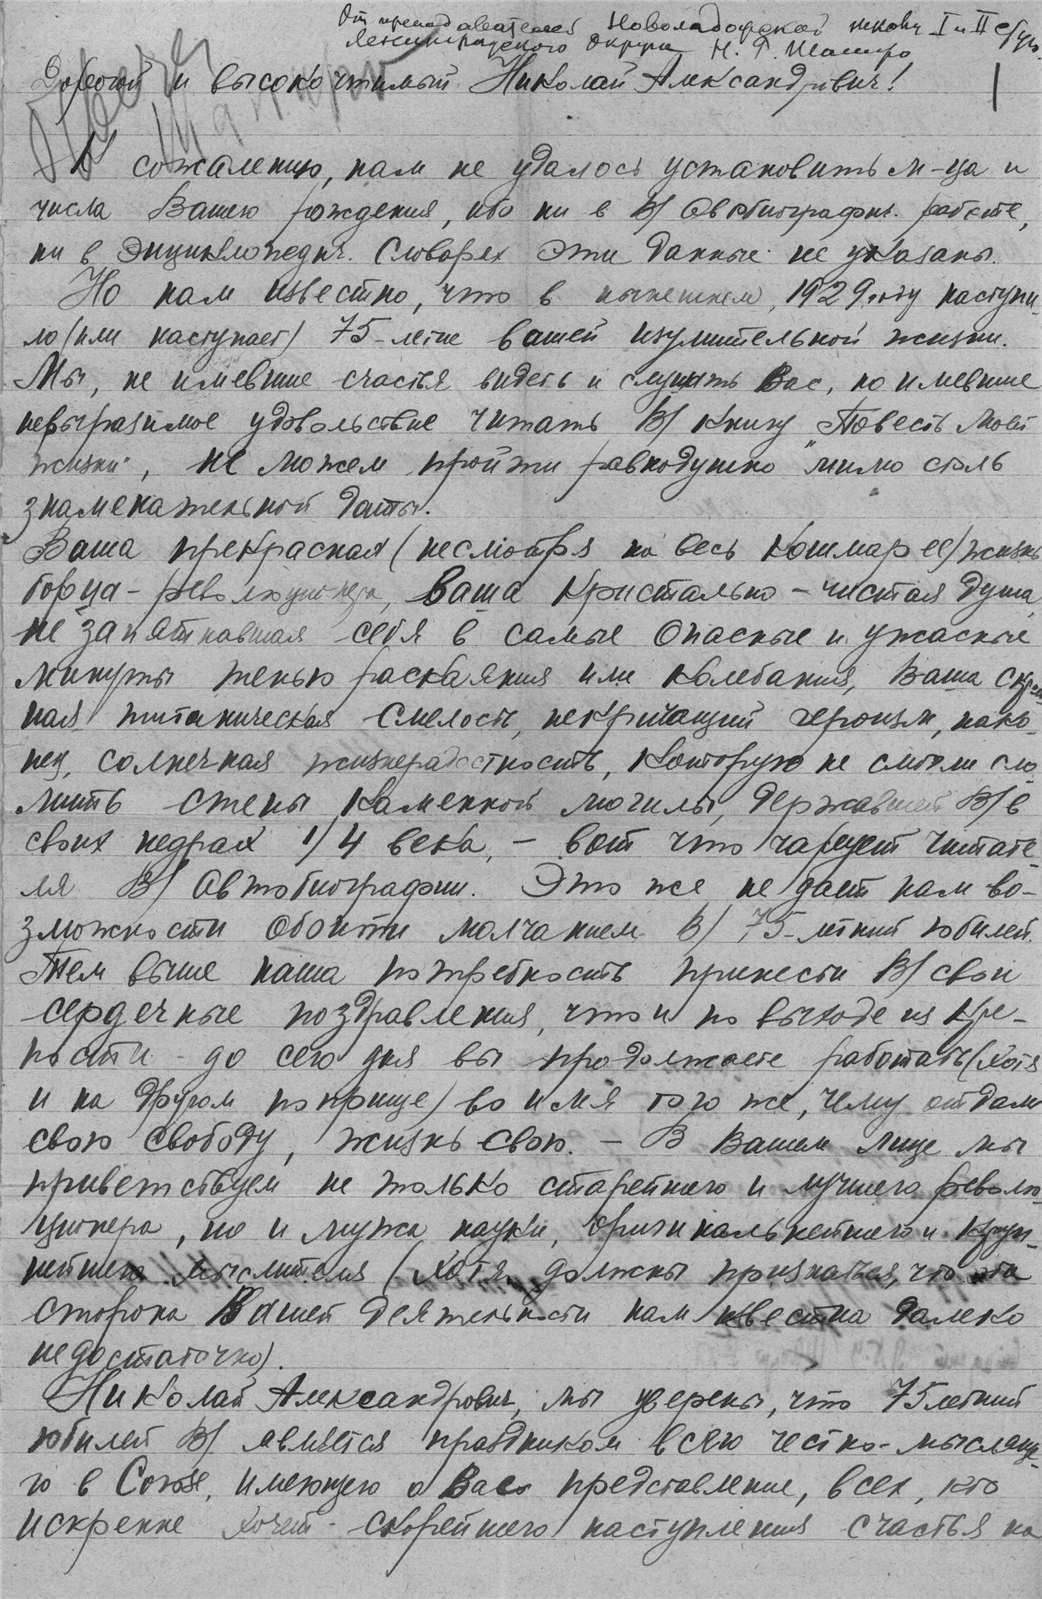 От преподавателей Новоладожской школы I и II ступ.
Ленинградского округа Н. Г. Шапиро
1
Дорогой и высокочтимый Николай Александрович!
К сожалению, нам не удалось установить м-ца и
числа Вашего рождения, ибо ни в В/ автобиографич. работе,
ни в энциклопедич. словарях эти данные не указаны.
Но нам известно, что в нынешнем, 1929 году наступи-
ло (или наступает) 75-летие вашей изумительной жизни.
Мы, не имевшие счастья видеть и слушать Вас, но имевшие
невыразимое удовольствие читать В/ книгу "Повесть моей
жизни", не можем пройти равнодушно мимо столь
знаменательной даты.
Ваша прекрасная (несмотря на весь кошмар ее) жизнь
борца-революционера, ваша кристально-чистая душа,
не запятнавшая себя в самые опасные и ужасные
минуты тенью раскаяния или колебания, Ваша скром-
ная титаническая смелость, некричащий героизм, нако-
нец, солнечная жизнерадостность, которую не смогли сло-
мить стены каменной могилы, державшей В/ в
своих недрах 1/4 века, – вот что чарует читате-
ля В/ автобиографии. Это же не дает нам во-
зможности обойти молчанием В/ 75-летний юбилей.
Тем выше наша потребность принести В/ свои
сердечные поздравления, что и по выходе из кре-
пости – до сего дня вы продолжаете работать (хотя
и на другом поприще) во имя того же, чему отдали
свою свободу, жизнь свою. – В Вашем лице мы
приветствуем не только старейшего и лучшего револю-
ционера, но и мужа науки, оригинальнейшего и круп-
нейшего мыслителя (хотя, должны признаться, что эта
сторона Вашей деятельности нам известна далеко
недостаточно).
Николай Александрович, мы уверены, что 75летний
юбилей В/ является праздником всего честно-мысляще-
го в Союзе, имеющего о Вас представление, всех, кто
искренне хочет скорейшего наступления счастья на